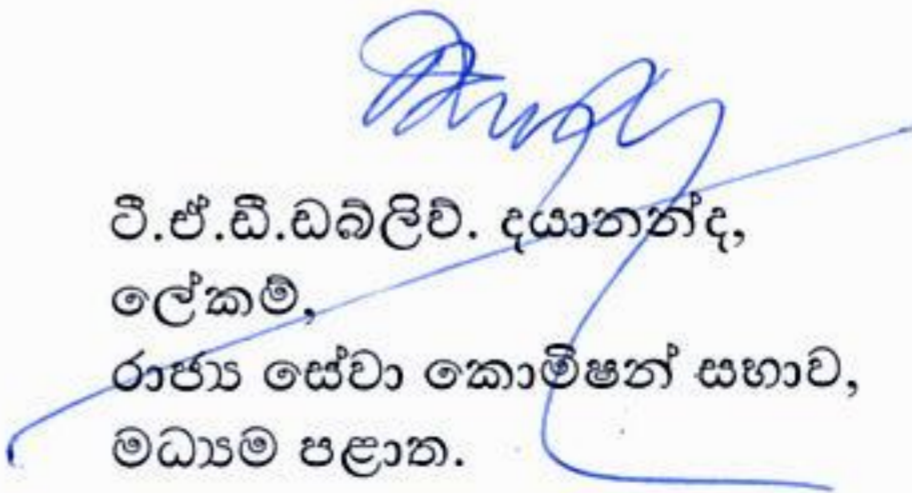 ටී.ඒ.ඩී.ඩබ්ලිව්. දයානන්ද,
ලේකම්,
රාජ්‍ය සේවා කොමිෂන් සභාව,
මධ්‍යම පළාත.